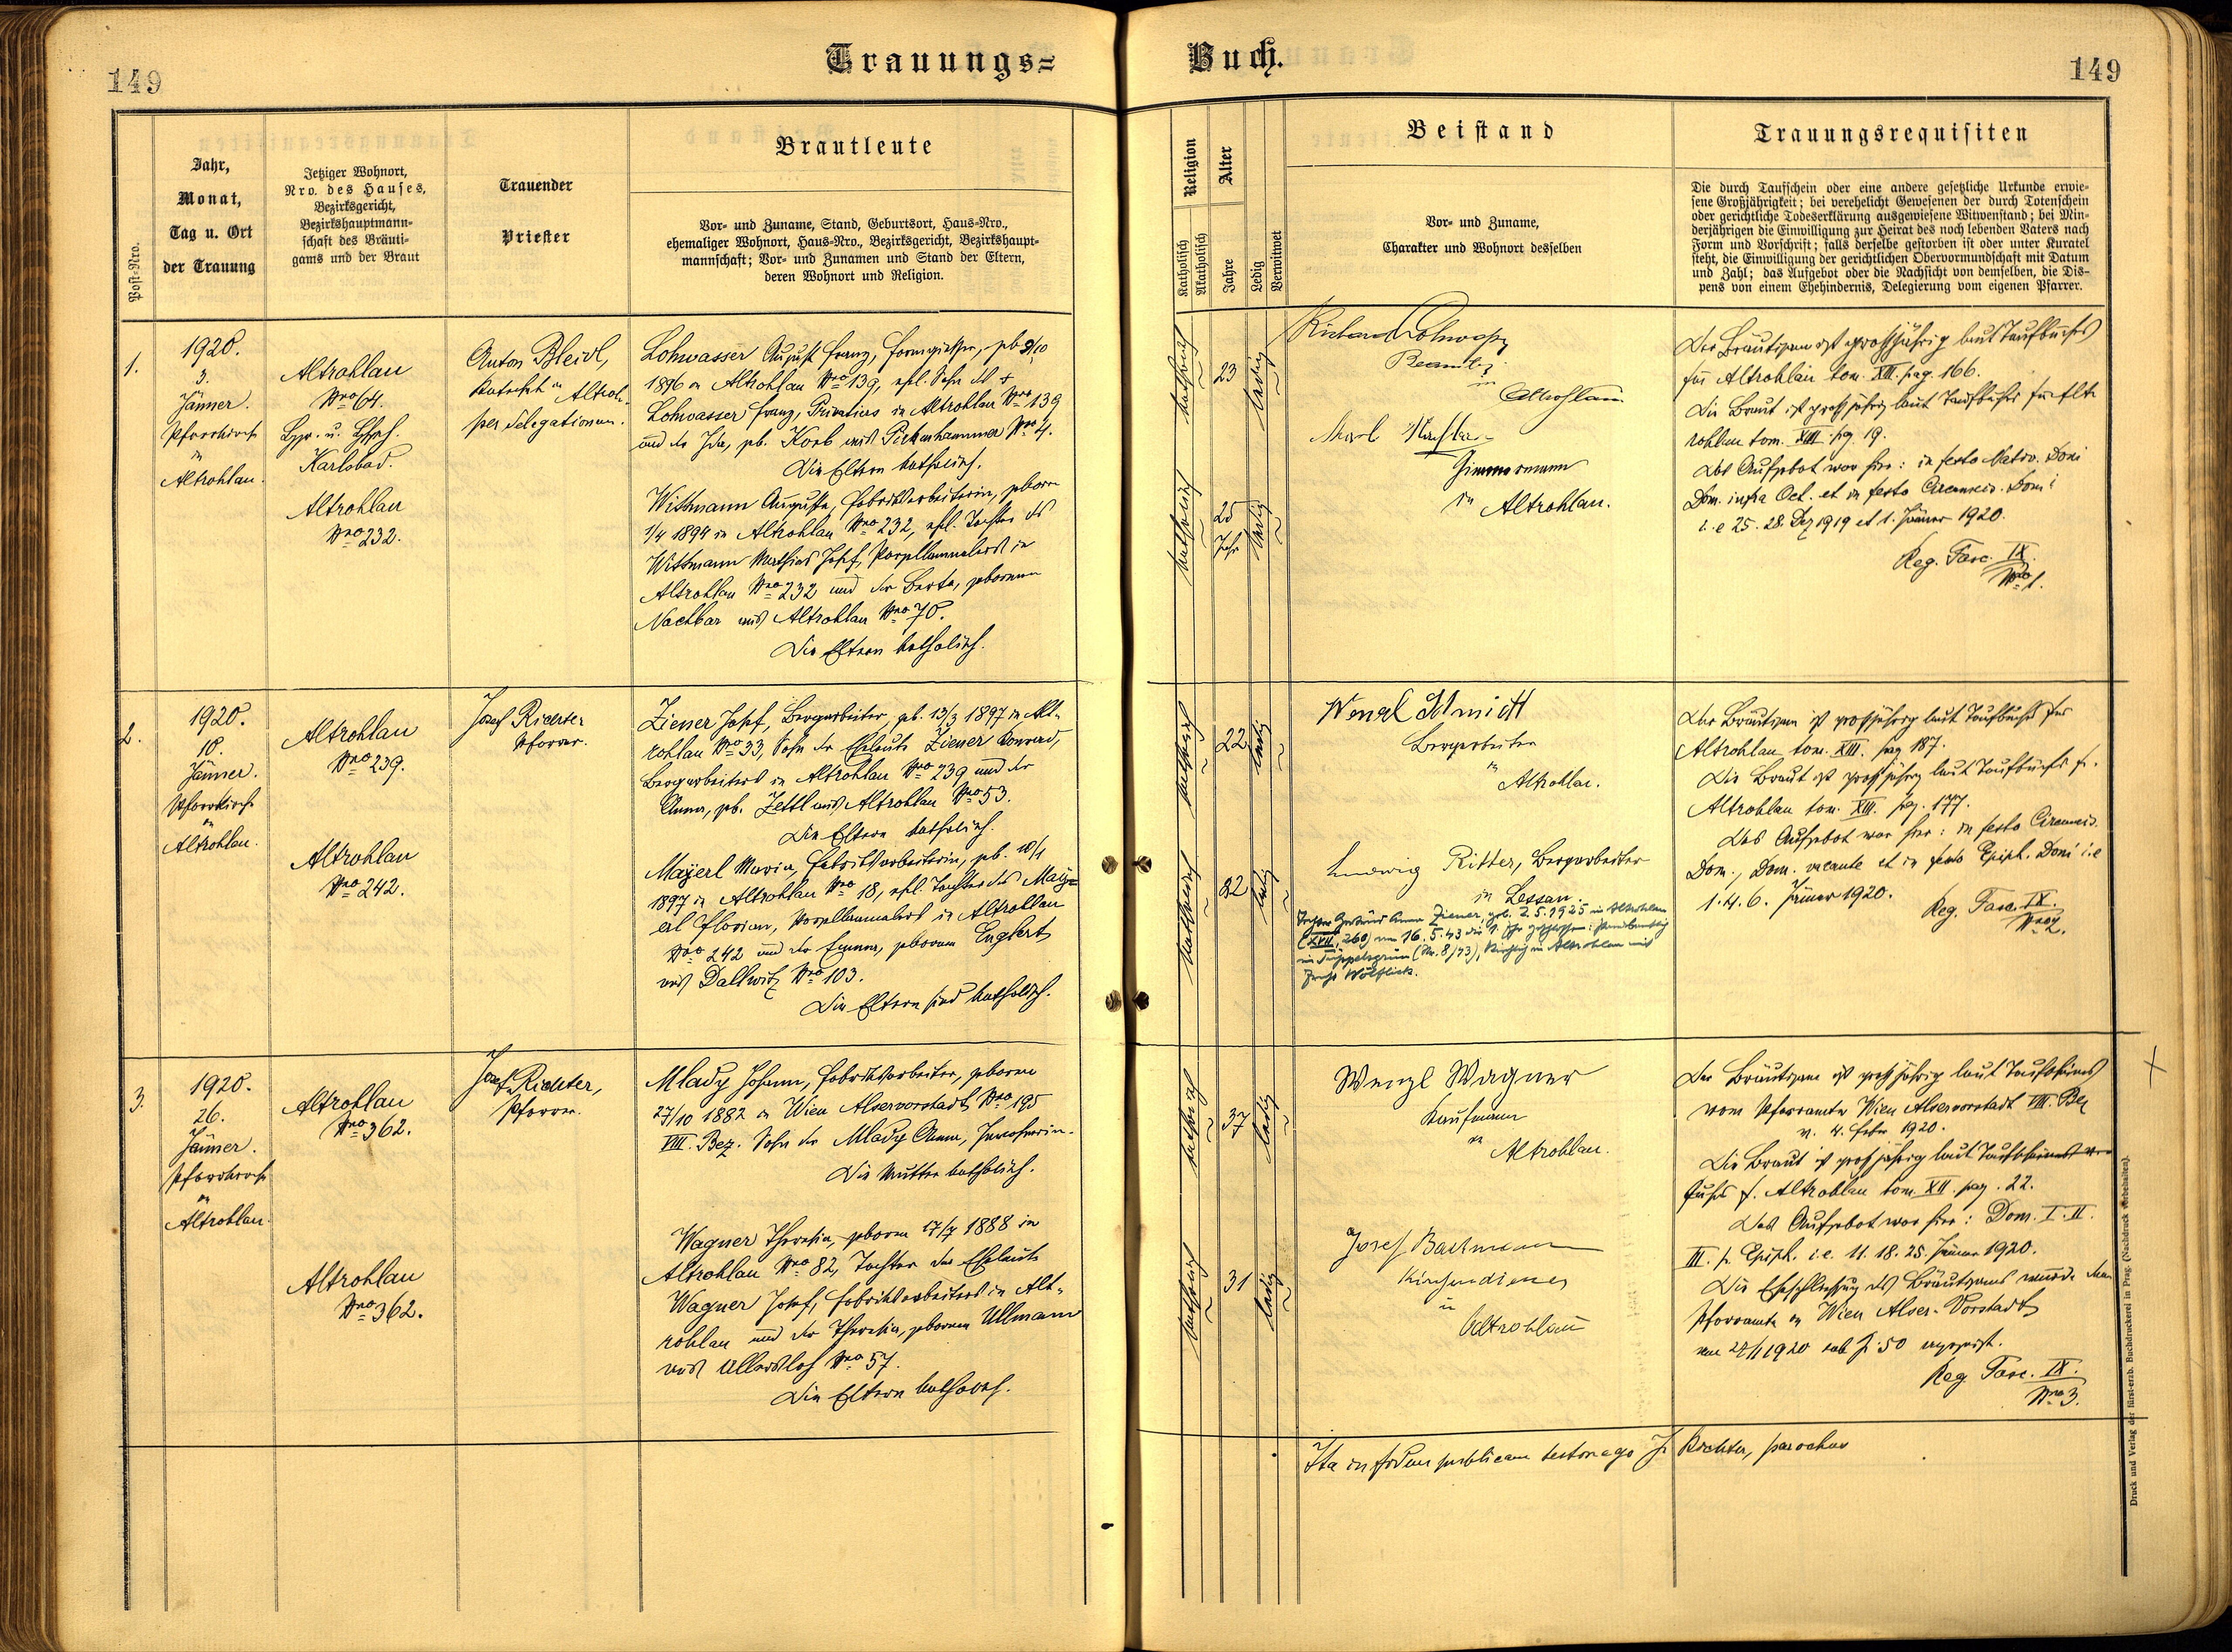 Trauungs=
Buch.
149
149
Post-Nro.
Jahr,
Monat,
Tag u. Ort
der Trauung
Jetziger Wohnort,
Nro. des Hauses,
Bezirksgericht,
Bezirkshauptmann-
schaft des Bräuti-
gams und der Braut
Trauender
Priester
Brautleute
Vor- und Zuname, Stand, Geburtsort, Haus-Nro.,
ehemaliger Wohnort, Haus-Nro., Bezirksgericht, Bezirkshaupt-
mannschaft; Vor- und Zunamen und Stand der Eltern,
deren Wohnort und Religion.
Religion
Katholisch
Akatholisch
Alter
Jahre
Ledig
Verwitwet
Beistand
Vor- und Zuname,
Charakter und Wohnort desselben
Trauungsrequisiten
Die durch Taufschein oder eine andere gesetzliche Urkunde erwie-
sene Großjährigkeit; bei verehelicht Gewesenen der durch Totenschein
oder gerichtliche Todeserklärung ausgewiesene Witwenstand; bei Min-
derjährigen die Einwilligung zur Heirat des noch lebenden Vaters nach
Form und Vorschrift; falls derselbe gestorben ist oder unter Kuratel
steht, die Einwilligung der gerichtlichen Obervormundschaft mit Datum
und Zahl; das Aufgebot oder die Nachsicht von demselben, die Dis-
pens von einem Ehehindernis, Delegierung vom eigenen Pfarrer.
1.
1920.
3.
Jänner.
Pfarrkirche
in
Altrohlau.
Altrohlau
Nro 64.
Karlsbad.
Altrohlau
Nro 232.
Anton Bleidl,
Katechet in Altroh.
per delegationem.
Lohwasser August Franz, Formgießer, geb. 9/10
1896 in Altrohlau Nro 139, ehl. Sohn des
Lohwasser Franz, Privatiers in Altrohlau Nro 139
und der Ida, geb. Korb aus Pirkenhammer Nro 4.
Die Eltern katholisch.
Wittmann Augusta, Fabriksarbeiterin, geboren
1/4 1894 in Altrohlau Nro 232, ehl. Tochter des
Wittmann Mathias Josef, Porzellanmalers in
Altrohlau Nro 232 und der Berta, geborenen
Nachbar aus Altrohlau Nro 70.
Die Eltern katholisch.
katholisch
23
ledig
katholisch
25
Jahr
ledig
Richard Lohwasser
Beamter
in
Altrohlau
Zimmermann
in Altrohlau.
Der Bräutigam ist großjährig laut Taufbuches
für Altrohlau tom. XIII. pag. 166.
Die Braut ist großjährig laut Taufbuches für Alt-
rohlau tom. XIII. pg. 19.
Das Aufgebot war hier: in festo Nativ. Domi
Dom. infra Oct. et in festo Circumcis. Domi
i. e 25. 28. Dez 1919 et 1. Jänner 1920.
Reg. Fasc. IX.
Nro 1.
2.
1920.
10.
Jänner.
Pfarrkirche
in
Altrohlau.
Altrohlau
Nro 239.
Altrohlau
Nro 242.
Josef Richter
Pfarrer.
Ziener Josef, Bergarbeiter, geb. 13/3 1897 in Alt-
rohlau Nro 33, Sohn der Eheleute Ziener Konrad,
Bergarbeiters in Altrohlau Nro 239 und der
Anna, geb. Zettl aus Altrohlau Nro 53.
Die Eltern katholisch.
Mayerl Maria, Fabriksarbeiterin, geb. 10/1
1897 in Altrohlau Nro 18, ehl. Tochter des May-
erl Florian, Porzellanmalers in Altrohlau
Nro 242 und der Emma, geborenen Englert
aus Dallwitz Nro 103.
Die Eltern sind katholisch.
katholisch
22
ledig
katholisch
22
ledig
Wenzl Schmidt
Bergarbeiter
in
Altrohlau.
Ludwig Ritter, Bergarbeiter
in Lessau.
Tochter Gertrud Anna Ziener, geb. 2.5.1925 in Altrohlau
(XVII, 260) am 16.5.43 die 1. Ehe geschlossen: standesamtlich
in Tüppelsgrün (Nr. 8/43), kirchlich in Altrohlau mit
Der Bräutigam ist großjährig laut Taufbuches für
Altrohlau tom. XIII. pag 187.
Die Braut ist großjährig laut Taufbuches f.
Altrohlau tom. XIII. pag. 177.
Das Aufgebot war hier: in festo Circumcis.
Dom., Dom. vacante et in festo Epiph. Domi i.e
1. 4. 6. Jänner 1920.
Reg. Fasc. IX.
Nro 2.
3.
1920.
26.
Jänner.
Pfarrkirche
in
Altrohlau.
Altrohlau
Nro 362.
Altrohlau
Nro 362.
Josef Richter,
Pfarrer.
Mlady Johann, Fabriksarbeiter, geboren
27/10 1882 in Wien Alservorstadt Nro 195
VIII. Bez. Sohn der Mlady Anna,
Die Mutter katholisch.
Wagner Theresia, geboren 17/7 1888 in
Altrohlau Nro 82, Tochter der Eheleute
Wagner Josef, Fabriksarbeiters in Alt-
rohlau und der Theresia, geborenen Ullmann
aus Ullersloh Nro 57.
Die Eltern katholisch.
katholisch
37
ledig
katholisch
31
ledig
Wenzl Wagner
Kaufmann
in
Altrohlau.
Josef Bachmann
Kirchendiener
in
Altrohlau
Der Bräutigam ist großjährig laut Taufscheines
vom Pfarramte Wien Alservorstadt VIII. Bez
v. 4. Febr 1920.
Die Braut ist großjährig laut
f. Altrohlau tom. XII pag. 22.
Das Aufgebot war hier: Dom. I. II.
III. p. Epiph. i.e. 11. 18. 25. Jänner 1920.
Die Eheschließung des Bräutigams wurde dem
Pfarramte in Wien Alser-Vorstadt
am 27/1 1920 sub Z: 50 angezeigt.
Reg. Fasc. IX.
Nro 3.
Ita in fidem publicam testor ego J. Richter, parochus
Druck und Verlag der fürst-erzb. Buchdruckerei in Prag. (Nachdruck vorbehalten).